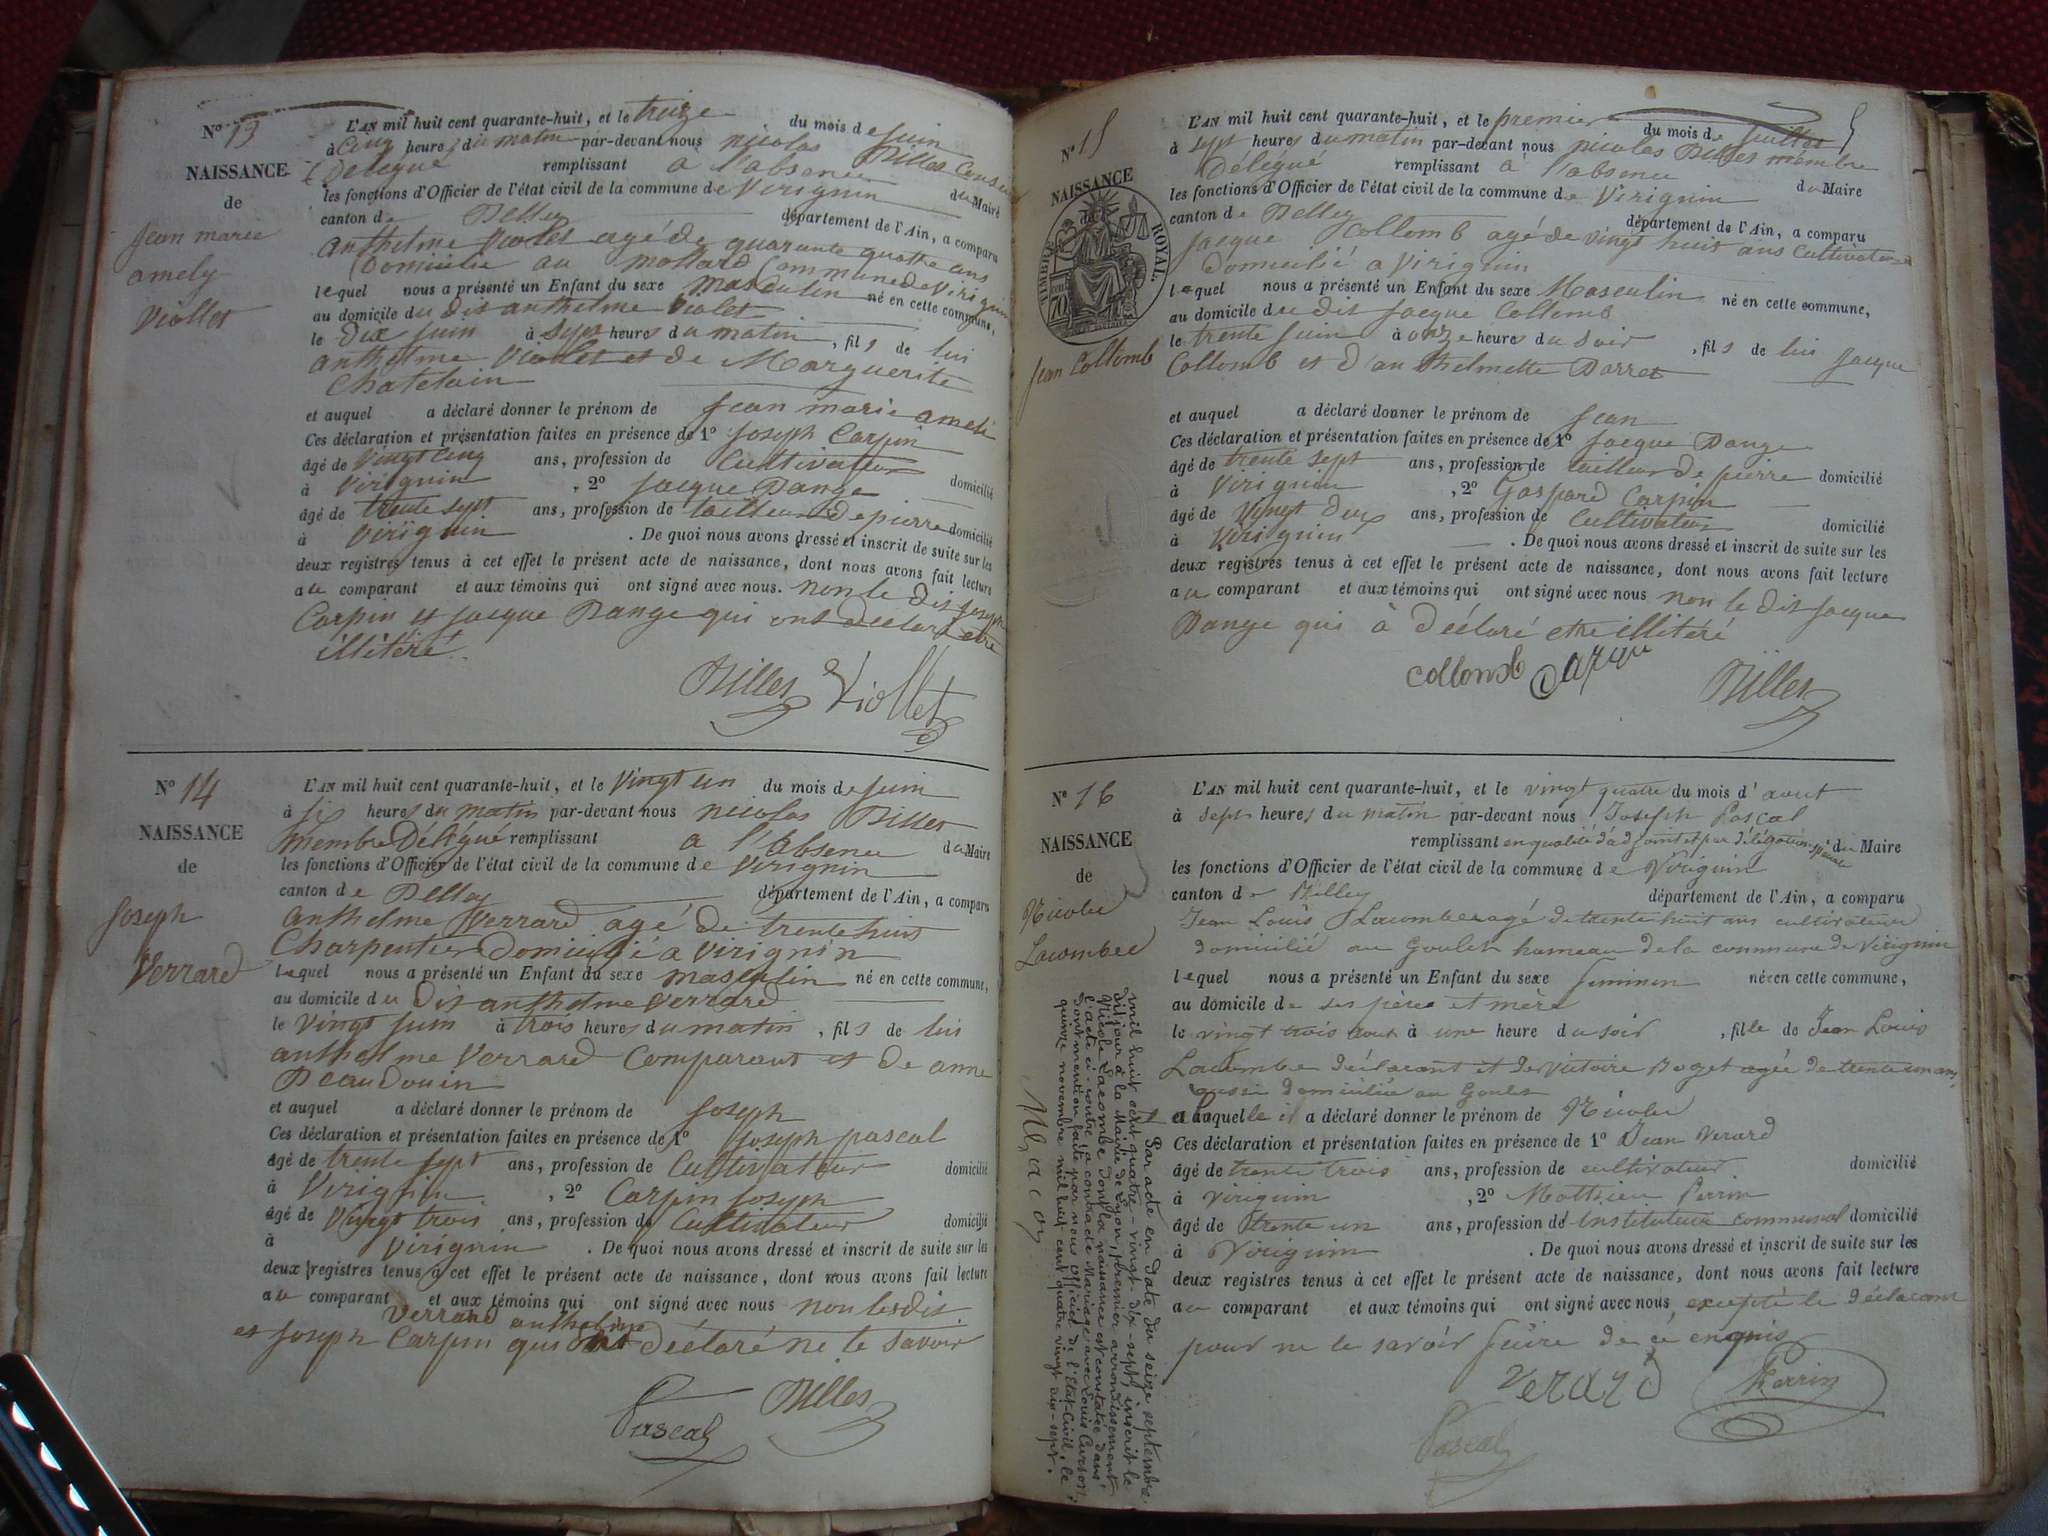 N° 13
NAISSANCE
de
Jean marie
amely
Viollet
L'AN mil huit cent quarante-huit, et le treize du mois de juin
à Cinq heures du matin par-devant nous nicolas Billet
Délégué remplissant a l'absence du Maire
les fonctions d'Officier de l'état civil de la commune de Virignin
canton de Belley département de l'Ain, a comparu
anthelme Violet agé de quarante quatre ans
domicilié au mollard Commune de Virignin
lequel nous a présenté un Enfant du sexe masculin né en cette commune,
au domicile du dit anthelme Violet
le dix juin à sept heures du matin, fils de lui
anthelme Violet et de Marguerite
Chatelain
et auquel a déclaré donner le prénom de jean marie ameli
Ces déclaration et présentation faites en présence de 1° joseph Carpin
âgé de vingt cinq ans, profession de Cultivateur domicilié
à Virignin, 2° jacque Dange
âgé de trente sept ans, profession de tailleur de pierre domicilié
à Virignin. De quoi nous avons dressé et inscrit de suite sur les
deux registres tenus à cet effet le présent acte de naissance, dont nous avons fait lecture
au comparant et aux témoins qui ont signé avec nous. non le dit joseph
Carpin et jacque Dange qui ont déclaré etre
illitéré
Billet Viollet
N° 14
NAISSANCE
de
joseph
Verrard
L'AN mil huit cent quarante-huit, et le vingt un du mois de juin
à six heures du matin par-devant nous nicolas Billet
membre Délégué remplissant a l'absence du Maire
les fonctions d'Officier de l'état civil de la commune de Virignin
canton de Belley département de l'Ain, a comparu
anthelme Verrard agé de trente huit
Charpentier domicilié a virignin
lequel nous a présenté un Enfant du sexe masculin né en cette commune,
au domicile du dit anthelme verrard
le vingt juin à trois heures du matin, fils de lui
anthelme Verrard Comparant et de anne
Beaudouin
et auquel a déclaré donner le prénom de joseph
Ces déclaration et présentation faites en présence de 1° joseph pascal
âgé de trente sept ans, profession de Cultivateur domicilié
à Virignin, 2° Carpin joseph
âgé de vingt trois ans, profession de Cultivateur domicilié
à Virignin. De quoi nous avons dressé et inscrit de suite sur les
deux registres tenus à cet effet le présent acte de naissance, dont nous avons fait lecture
au comparant et aux témoins qui ont signé avec nous non lesdit
Verrard anthelme
et joseph Carpin qui ont déclaré ne le savoir
Pascal Billet
5
N° 15
NAISSANCE
de
TIMBRE ROYAL
70
jean Collomb
L'AN mil huit cent quarante-huit, et le premier du mois de juillet
à sept heures du matin par-devant nous nicolas Billet membre
Délégué remplissant a l'absence du Maire
les fonctions d'Officier de l'état civil de la commune de Virignin
canton de Belley département de l'Ain, a comparu
jacque Collomb agé de vingt huit ans Cultivateur
domicilié a virignin
lequel nous a présenté un Enfant du sexe Masculin né en cette commune,
au domicile du dit jacque Collomb
le trente juin à onze heures du soir, fils de lui jacque
Collomb et d'anthelmette Barret
et auquel a déclaré donner le prénom de jean
Ces déclaration et présentation faites en présence de 1° jacque Dange
âgé de trente sept ans, profession de tailleur de pierre domicilié
à Virignin, 2° Gaspard Carpin
âgé de vingt deux ans, profession de Cultivateur domicilié
à Virignin. De quoi nous avons dressé et inscrit de suite sur les
deux registres tenus à cet effet le présent acte de naissance, dont nous avons fait lecture
au comparant et aux témoins qui ont signé avec nous non le dit jacque
Dange qui à déclaré etre illitéré
collomb Billet
N° 16
NAISSANCE
de
Nicolee
Lacombee
L'AN mil huit cent quarante-huit, et le vingt quatre du mois d'aout
à sept heures du matin par-devant nous Joseph Pascal
remplissant en qualité d'adjoint et par délégation spéciale du Maire
les fonctions d'Officier de l'état civil de la commune de Virignin
canton de Belley département de l'Ain, a comparu
Jean Louis Lacombe agé de trente huit ans cultivateur
domicilié au Goulet hameau de la commune de Virignin
lequel nous a présenté un Enfant du sexe feminin née en cette commune,
au domicile de ses père et mère
le vingt trois aout à une heure du soir, fille de Jean Louis
Lacombe déclarant et de Victoire Boget agée de trente un ans
aussi domiciliée au Goulet
et à laquelle il a déclaré donner le prénom de Nicolee
Ces déclaration et présentation faites en présence de 1° Jean Verard
âgé de trente trois ans, profession de cultivateur domicilié
à Virignin, 2° Mathieu Perrin
âgé de trente un ans, profession de instituteur communal domicilié
à Virignin. De quoi nous avons dressé et inscrit de suite sur les
deux registres tenus à cet effet le présent acte de naissance, dont nous avons fait lecture
au comparant et aux témoins qui ont signé avec nous excepté le déclarant
pour ne le savoir faire de ce enquis
verard Perrin
Pascal
Par acte en date du seize septembre
mil huit cent quatre-vingt-dix-sept, inscrit le
dit jour à la Mairie de Lyon, premier arrondissement
Nicole Lacombe dont la naissance est constatée dans
l'acte ci-contre a contracté Mariage avec Louis Curson,
dont mention faite par nous officier de l'Etat-Civil, le
quinze novembre mil huit cent quatre vingt dix-sept.